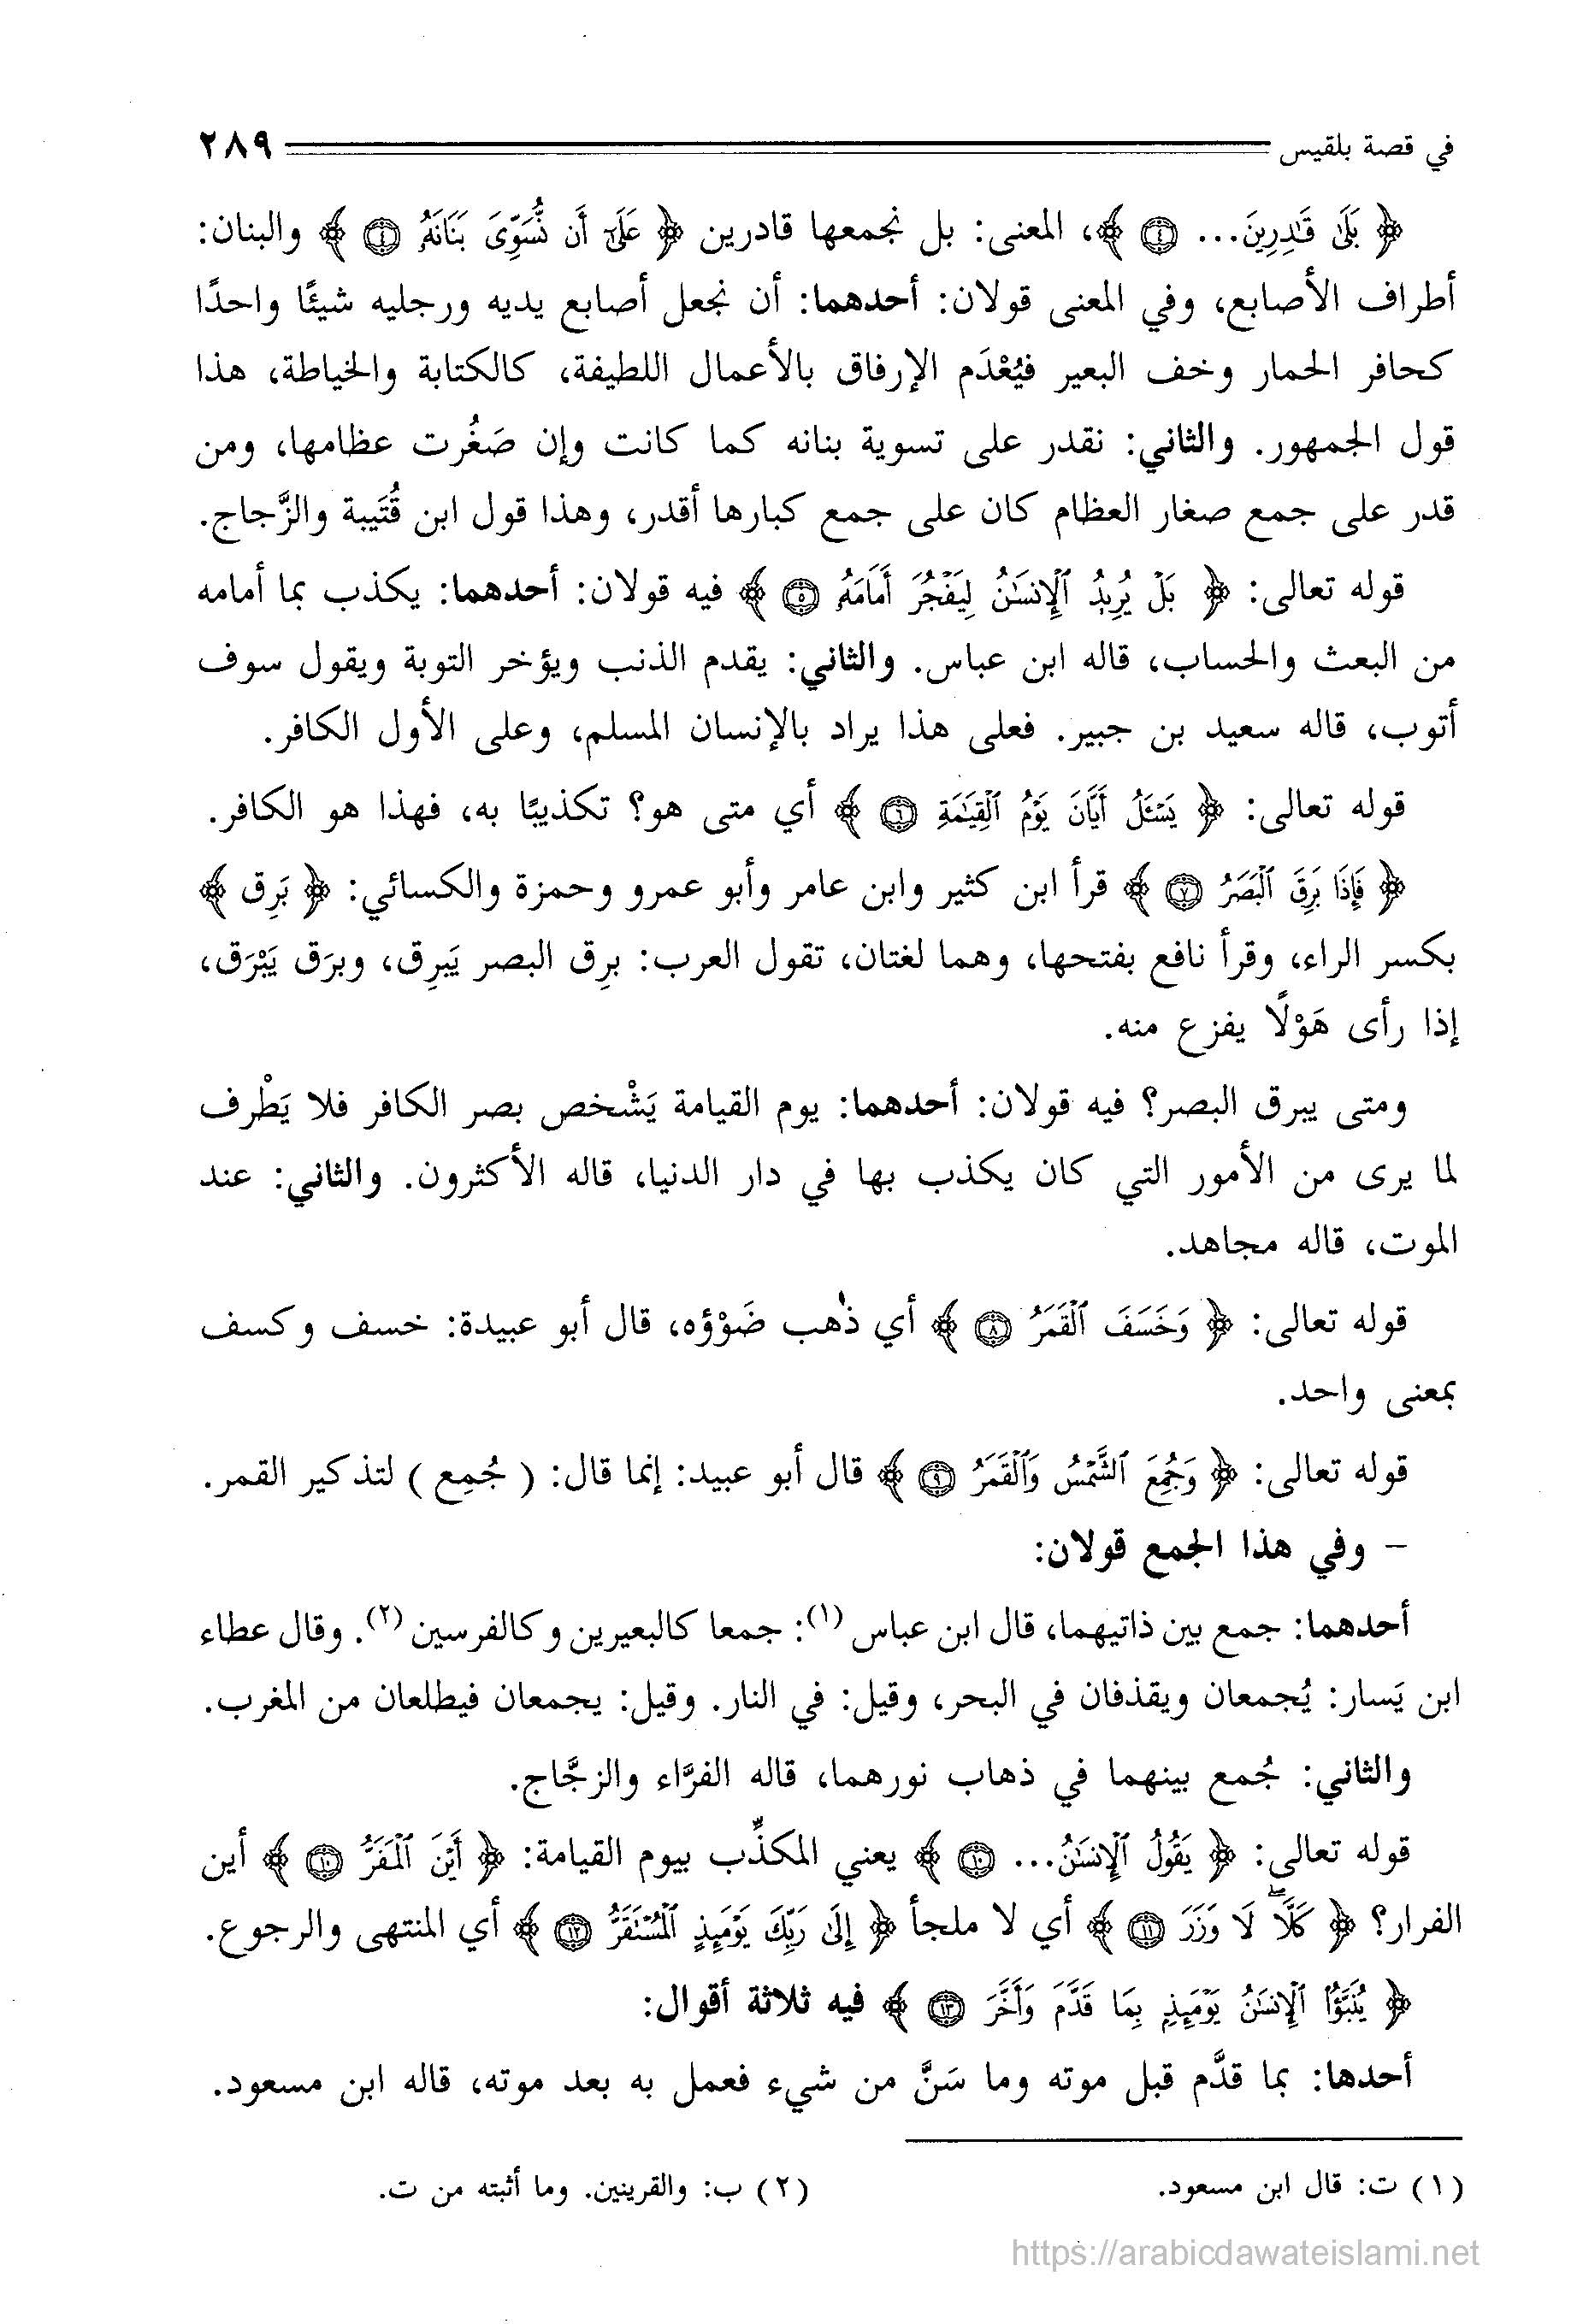 في قصة بلقيس ٢٨٩
﴿ بَلَىٰ قَٰدِرِينَ... ٤ ﴾، المعنى: بل نجمعها قادرين ﴿ عَلَىٰٓ أَن نُّسَوِّىَ بَنَانَهُۥ ٤ ﴾ والبنان:
أطراف الأصابع، وفي المعنى قولان: أحدهما: أن نجعل أصابع يديه ورجليه شيئًا واحدًا
كحافر الحمار وخف البعير فيُعْدَم الإرفاق بالأعمال اللطيفة، كالكتابة والخياطة، هذا
قول الجمهور. والثاني: نقدر على تسوية بنانه كما كانت وإن صَغُرت عظامها، ومن
قدر على جمع صغار العظام كان على جمع كبارها أقدر، وهذا قول ابن قُتَيبة والزَّجاج.
قوله تعالى: ﴿ بَلْ يُرِيدُ ٱلْإِنسَٰنُ لِيَفْجُرَ أَمَامَهُۥ ٥ ﴾ فيه قولان: أحدهما: يكذب بما أمامه
من البعث والحساب، قاله ابن عباس. والثاني: يقدم الذنب ويؤخر التوبة ويقول سوف
أتوب، قاله سعيد بن جبير. فعلى هذا يراد بالإنسان المسلم، وعلى الأول الكافر.
قوله تعالى: ﴿ يَسْـَٔلُ أَيَّانَ يَوْمُ ٱلْقِيَٰمَةِ ٦ ﴾ أي متى هو؟ تكذيبًا به، فهذا هو الكافر.
﴿ فَإِذَا بَرِقَ ٱلْبَصَرُ ٧ ﴾ قرأ ابن كثير وابن عامر وأبو عمرو وحمزة والكسائي: ﴿ بَرِق ﴾
بكسر الراء، وقرأ نافع بفتحها، وهما لغتان، تقول العرب: برِق البصر يَبرِق، وبرَق يَبْرَق،
إذا رأى هَوْلًا يفزع منه.
ومتى يبرق البصر؟ فيه قولان: أحدهما: يوم القيامة يَشْخص بصر الكافر فلا يَطْرف
لما يرى من الأمور التي كان يكذب بها في دار الدنيا، قاله الأكثرون. والثاني: عند
الموت، قاله مجاهد.
قوله تعالى: ﴿ وَخَسَفَ ٱلْقَمَرُ ٨ ﴾ أي ذهب ضَوْؤه، قال أبو عبيدة: خسف وكسف
بمعنى واحد.
قوله تعالى: ﴿ وَجُمِعَ ٱلشَّمْسُ وَٱلْقَمَرُ ٩ ﴾ قال أبو عبيد: إنما قال: ( جُمِع ) لتذكير القمر.
- وفي هذا الجمع قولان:
أحدهما: جمع بين ذاتيهما، قال ابن عباس (١): جمعا كالبعيرين وكالفرسين (٢). وقال عطاء
ابن يَسار: يُجمعان ويقذفان في البحر، وقيل: في النار. وقيل: يجمعان فيطلعان من المغرب.
والثاني: جُمع بينهما في ذهاب نورهما، قاله الفرَّاء والزجَّاج.
قوله تعالى: ﴿ يَقُولُ ٱلْإِنسَٰنُ... ١٠ ﴾ يعني المكذِّب بيوم القيامة: ﴿ أَيْنَ ٱلْمَفَرُّ ١٠ ﴾ أين
الفرار؟ ﴿ كَلَّا لَا وَزَرَ ١١ ﴾ أي لا ملجأ ﴿ إِلَىٰ رَبِّكَ يَوْمَئِذٍ ٱلْمُسْتَقَرُّ ١٢ ﴾ أي المنتهى والرجوع.
﴿ يُنَبَّؤُا۟ ٱلْإِنسَٰنُ يَوْمَئِذٍۭ بِمَا قَدَّمَ وَأَخَّرَ ١٣ ﴾ فيه ثلاثة أقوال:
أحدها: بما قدَّم قبل موته وما سَنَّ من شيء فعمل به بعد موته، قاله ابن مسعود.
(١) ت: قال ابن مسعود. (٢) ب: والقرينين. وما أثبته من ت.
https://arabicdawateislami.net